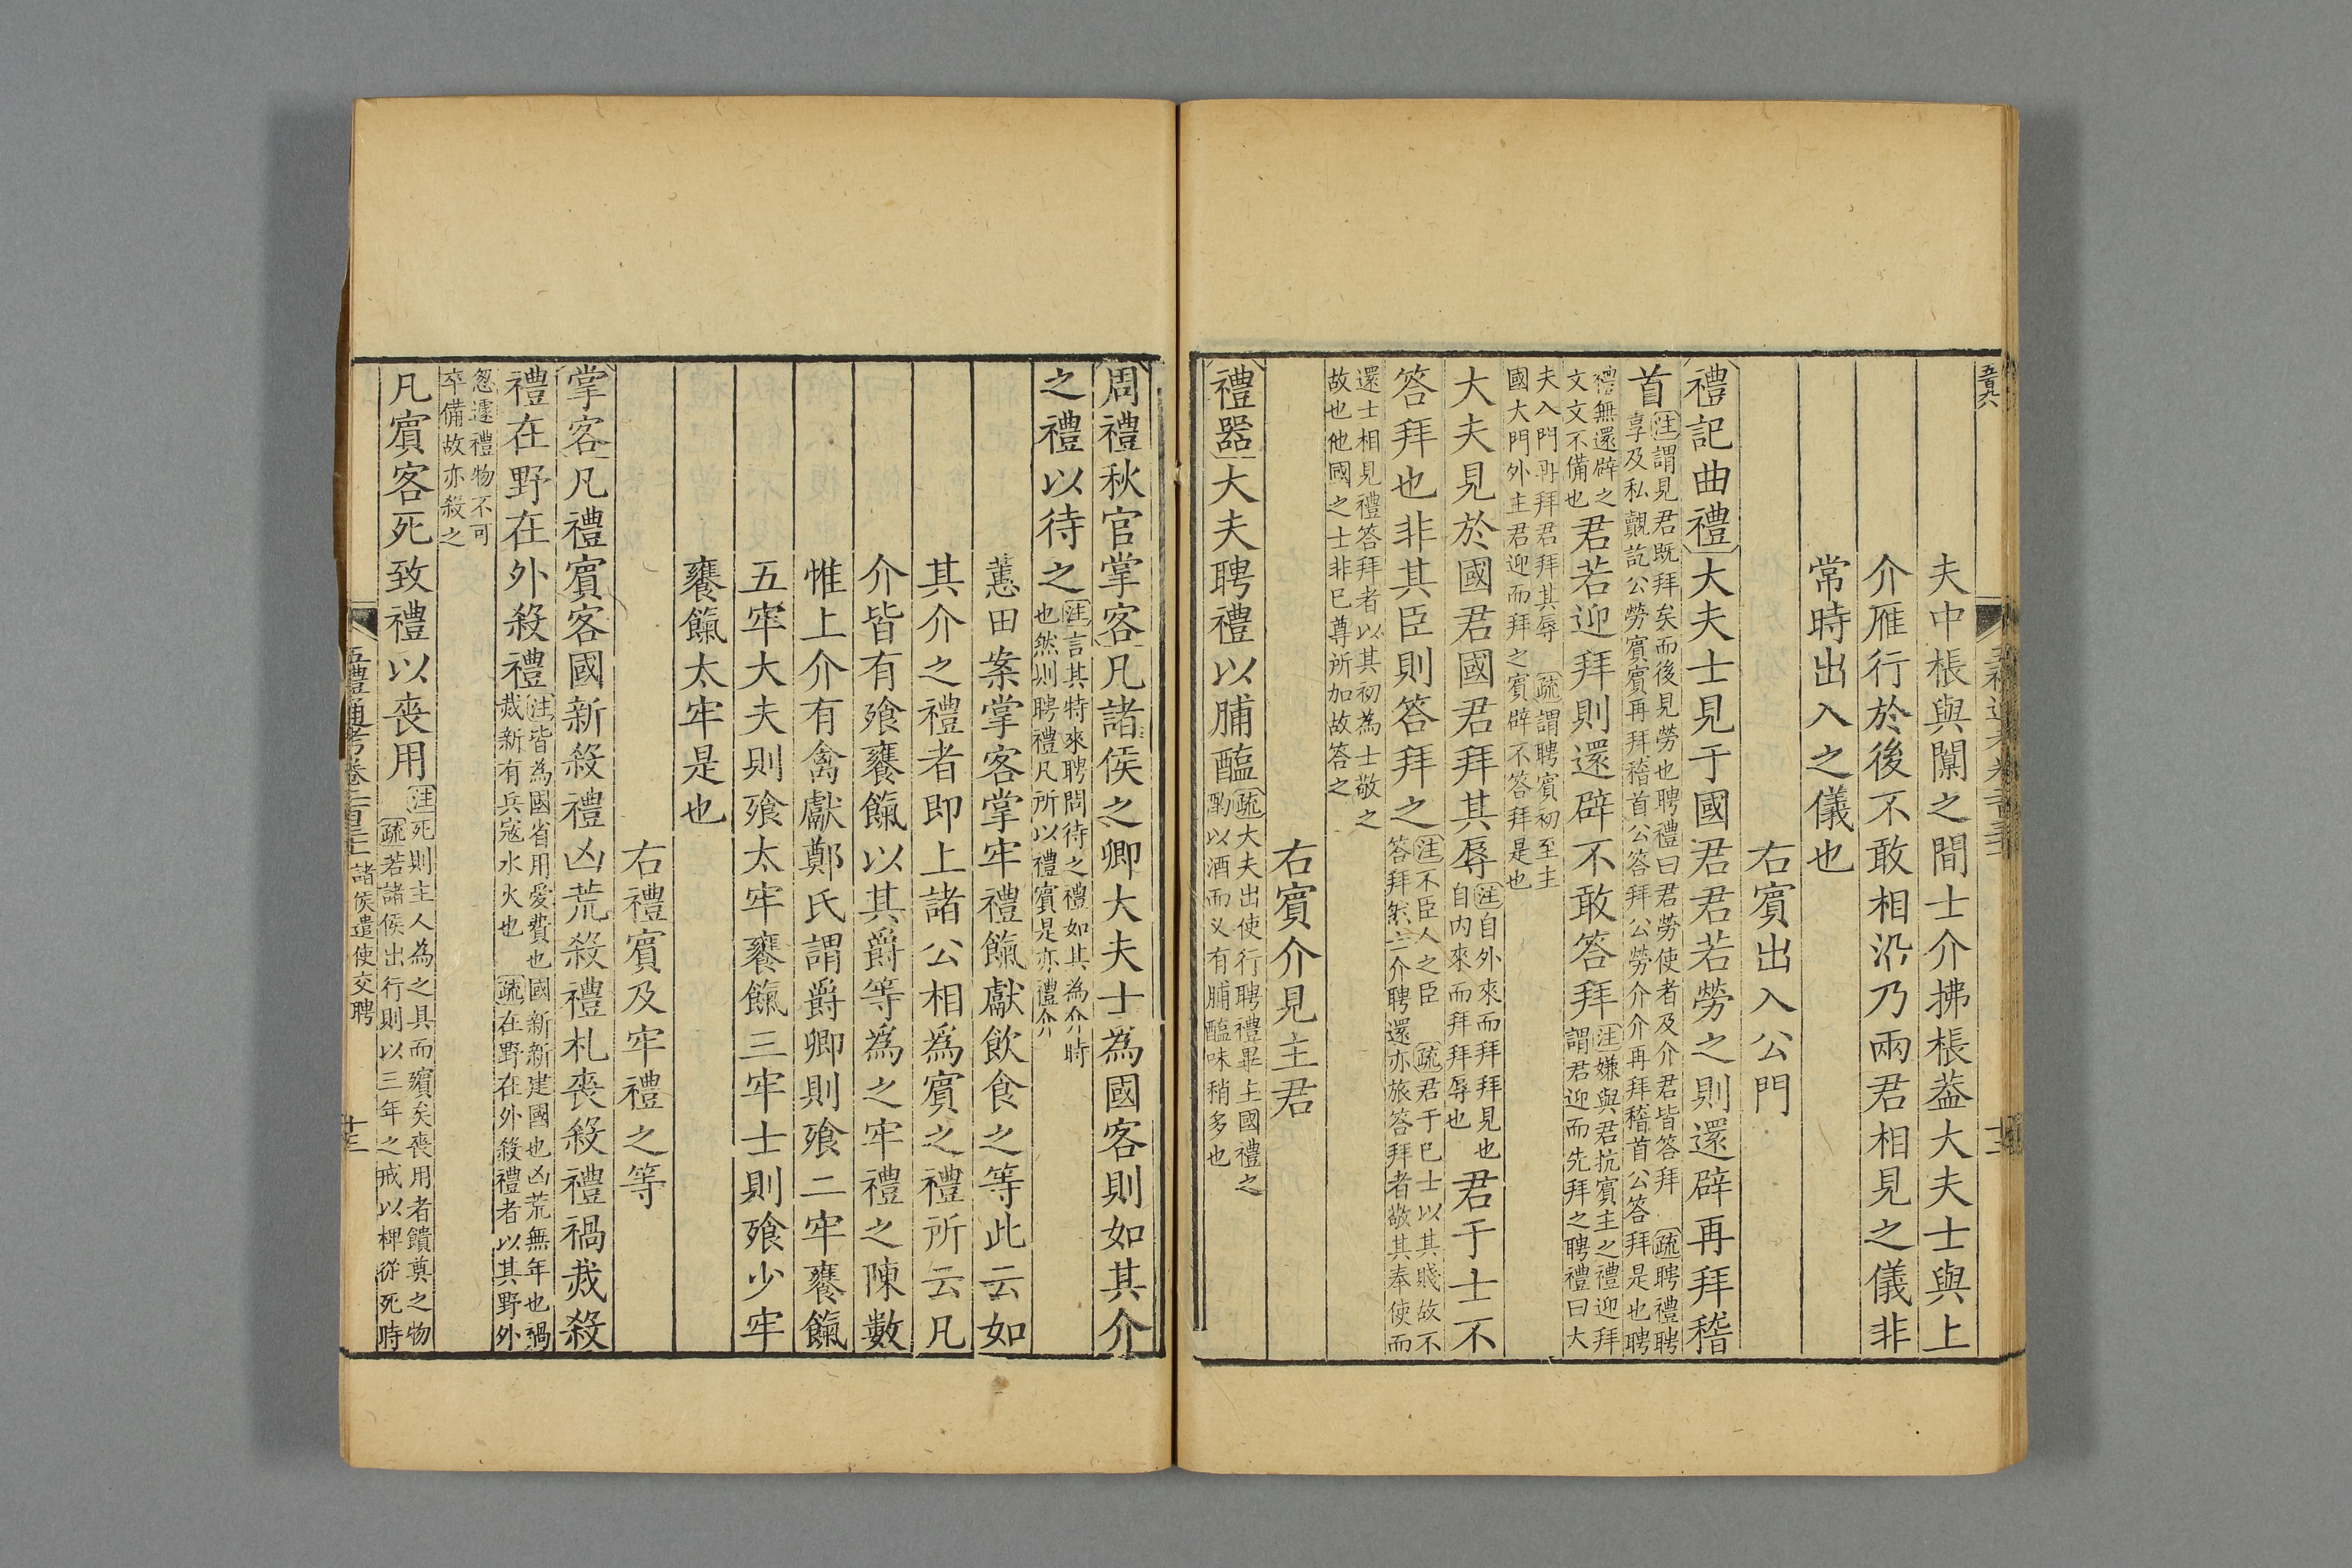 五百九六
夫中棖與闑之間士介拂棖葢大夫士與上
介雁行於後不敢相沿乃兩君相見之儀非
常時出入之儀也
右賓出入公門
禮記曲禮大夫士見于國君君若勞之則還辟再拜稽
首注謂見君既拜矣而後見勞也聘禮曰君勞使者及介君皆答拜 疏聘禮聘
享及私覿訖公勞賓賓再拜稽首公答拜公勞介介再拜稽首公答拜是也聘
禮無還辟之
文文不備也君若迎拜則還辟不敢答拜注嫌與君抗賓主之禮迎拜
謂君迎而先拜之聘禮曰大
夫入門再拜君拜其辱 疏謂聘賓初至主
國大門外主君迎而拜之賓辟不答拜是也
大夫見於國君國君拜其辱注自外來而拜拜見也
自内來而拜拜辱也君于士不
答拜也非其臣則答拜之注不臣人之臣 疏君于已士以其賤故不
答拜然士介聘還亦旅答拜者敬其奉使而
還士相見禮答拜者以其初為士敬之
故也他國之士非已尊所加故答之
右賓介見主君
禮器大夫聘禮以脯醢疏大夫出使行聘禮畢主國禮之
酌以酒而又有脯醢味稍多也
周禮秋官掌客凡諸侯之卿大夫士為國客則如其介
之禮以待之注言其特來聘問待之禮如其為介時
也然則聘禮凡所以禮賓是亦禮介
蕙田案掌客掌牢禮餼獻飲食之等此云如
其介之禮者即上諸公相為賓之禮所云凡
介皆有飱饔餼以其爵等為之牢禮之陳數
惟上介有禽獻鄭氏謂爵卿則飱二牢饔餼
五牢大夫則飱太牢饔餼三牢士則飱少牢
饔餼太牢是也
右禮賓及牢禮之等
掌客凡禮賓客國新殺禮凶荒殺禮札喪殺禮禍烖殺
禮在野在外殺禮注皆為國省用愛費也國新新建國也凶荒無年也禍
烖新有兵寇水火也 疏在野在外殺禮者以其野外
怱遽禮物不可
卒備故亦殺之
凡賓客死致禮以喪用注死則主人為之具而殯矣喪用者饋奠之物
疏若諸侯出行則以三年之戒以椑從死時
五禮通考卷二百三十一 諸侯遣使交聘
十三